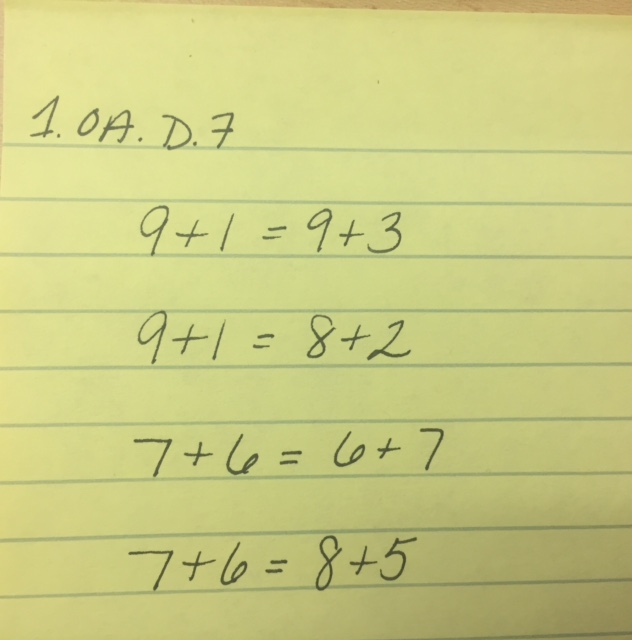 1. OA. D. 7
9+1 = 9+3
9+1 = 8+2
7+6 = 6+7
7+6 = 8+5